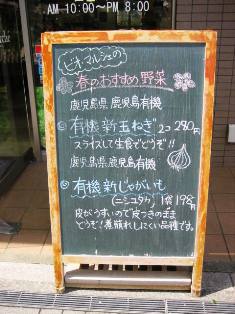 AM 10:00～PM 8:00
ビオ・マルシェの
春のおすすめ野菜
鹿児島県鹿児島有機
①有機新玉ねぎ 2コ 280円
スライスして生食でどうぞ!!
鹿児島県鹿児島有機
②有機新じゃがいも
(ニシユタカ) 1袋198円
皮がうすいので皮つきのまま
どうぞ!煮崩れしにくい品種です。